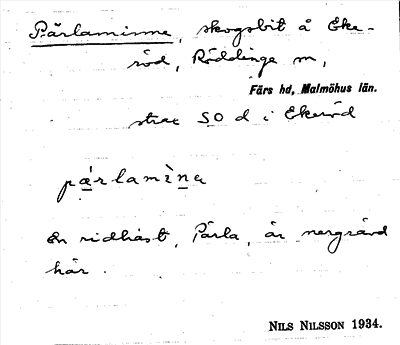 Pärlaminne, skogsbit å Eke-
röd, Röddinge sn,
Färs hd, Malmöhus län.
strax SO d i Ekeröd
pä́rlamìna
En ridhäst, Pärla, är nergrävd
här.
NILS NILSSON 1934.